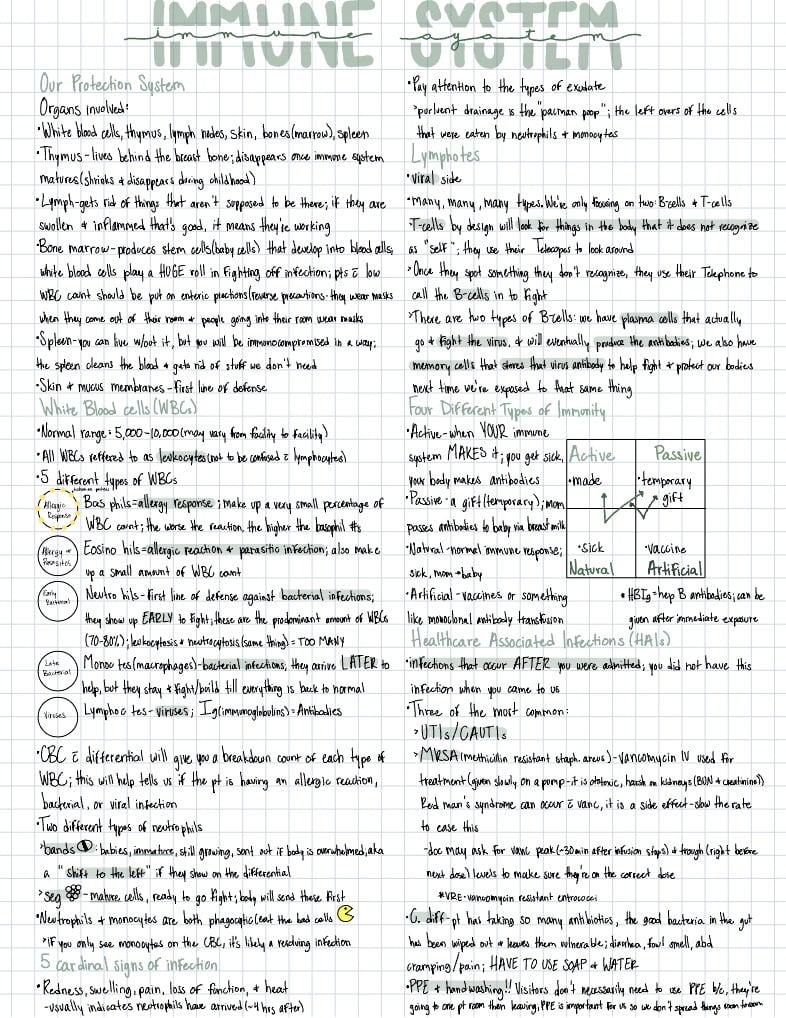 IMMUNE SYSTEM
immune system
Our Protection System
Organs involved:
•White blood cells, thymus, lymph nodes, skin, bones(marrow), spleen
•Thymus-lives behind the breast bone; disappears once immune system
matures(shrinks & disappears during childhood)
•Lymph-gets rid of things that aren't supposed to be there; if they are
swollen & inflammed that's good, it means they're working
•Bone marrow-produces stem cells(baby cells) that develop into blood cells;
white blood cells play a HUGE roll in fighting off infection; pts c̄ low
WBC count should be put on enteric prections(reverse precautions-they wear masks
when they come out of their room & people going into their room wear masks
•Spleen-you can live w/out it, but you will be immunocompromised in a way;
the spleen cleans the blood & gets rid of stuff we don't need
•Skin & mucus membranes-first line of defense
White Blood cells(WBCs)
•Normal range: 5,000-10,000(may vary from facility to facility)
•All WBCs reffered to as leukocytes(not to be confused c̄ lymphocytes)
•5 different types of WBCs
Allergic
Response
Bas phils-allergy response; make up a very small percentage of
WBC count; the worse the reaction, the higher the basophil #s
Allergy or
Parasites
Eosino hils-allergic reaction & parasitic infection; also make
up a small amount of WBC cont
Early
Bacterial
Neutro hils-first line of defense against bacterial infections;
they show up EARLY to fight; these are the predominant amount of WBCs
(70-80%); leukocytosis & neutrocytosis(same thing)= TOO MANY
Late
Bacterial
Mono tes(macrophages)-bacterial infections, they arrive LATER to
help, but they stay & fight/build till everything is back to normal
Viruses
Lymphoc tes- viruses; Ig(immunoglobulins)= Antibodies
•CBC c̄ differential will give you a breakdown count of each type of
WBC; this will help tells us if the pt is having an allergic reaction,
bacterial, or viral infection
•Two different types of neutrophils
>bands: babies, immature, still growing, sent out if body is overwhelmed, aka
a "shift to the left" if they show on the differential
>seg - mature cells, ready to go fight; body will send these first
•Neutrophils & monocytes are both phagocytic(eat the bad cells
>if you only see monocytes on the CBC, it's likely a resolving infection
5 cardinal signs of infection
•Redness, swelling, pain, loss of fonction, & heat
-usually indicates neutrophils have arrived(~4 hrs after)
•Pay attention to the types of exudate
>purluent drainage is the "pacman poop"; the left overs of the cells
that were eaten by neutrophils & monocytes
Lymphotes
•viral side
•Many, many, many types. We're only focusing on two: B-cells & T-cells
T-cells by design will look for things in the body that it does not recognize
as "self"; they use their Telescopes to look around
>Once they spot something they don't recognize, they use their Telephone to
call the B-cells in to fight
>There are two types of B-cells: we have plasma cells that actually
go & fight the virus, & will eventually produce the antibodies; we also have
memory cells that stores that virus antibody to help fight & protect our bodies
next time we're exposed to that same thing
Four Different Types of Immunity
•Active-when YOUR immune
system MAKES it; you get sick,
your body makes antibodies
•Passive-a gift(temporary); mom
passes antibodies to baby via breast milk
•Natural-normal immune response;
sick, mom→baby
•Artificial-vaccines or something
like monoclonal antibody transfusion
Active
Passive
•made
•temporary
gift
•sick
•vaccine
Natural
Artificial
•HBIg=hep B antibodies; can be
given after immediate exposure
Healthcare Associated Infections (HAIs)
•infections that occur AFTER you were admitted; you did not have this
infection when you came to us
•Three of the most common:
>UTIs/CAUTIs
>MRSA(methicillin resistant staph. areus)-Vancomycin IV used for
treatment(given slowly on a pump-it is ototoxic, harsh on kidneys(BUN & creatinine))
Red man's syndrome can occur c̄ vanc, it is a side effect-slow the rate
to ease this
-doc may ask for vanc peak(~30min after infusion stops) & trough(right before
next dose) levels to make sure they're on the correct dose
*VRE-vancomycin resistant entrococci
•C. diff-pt has taking so many antibiotics, the good bacteria in the gut
has been wiped out & leaves them vulnerable; diarrhea, fowl smell, abd
cramping/pain; HAVE TO USE SOAP & WATER
•PPE & handwashing!! Visitors don't necessarily need to use PPE b/c, they're
going to one pt room then leaving, PPE is important for us so we don't spread things room to room